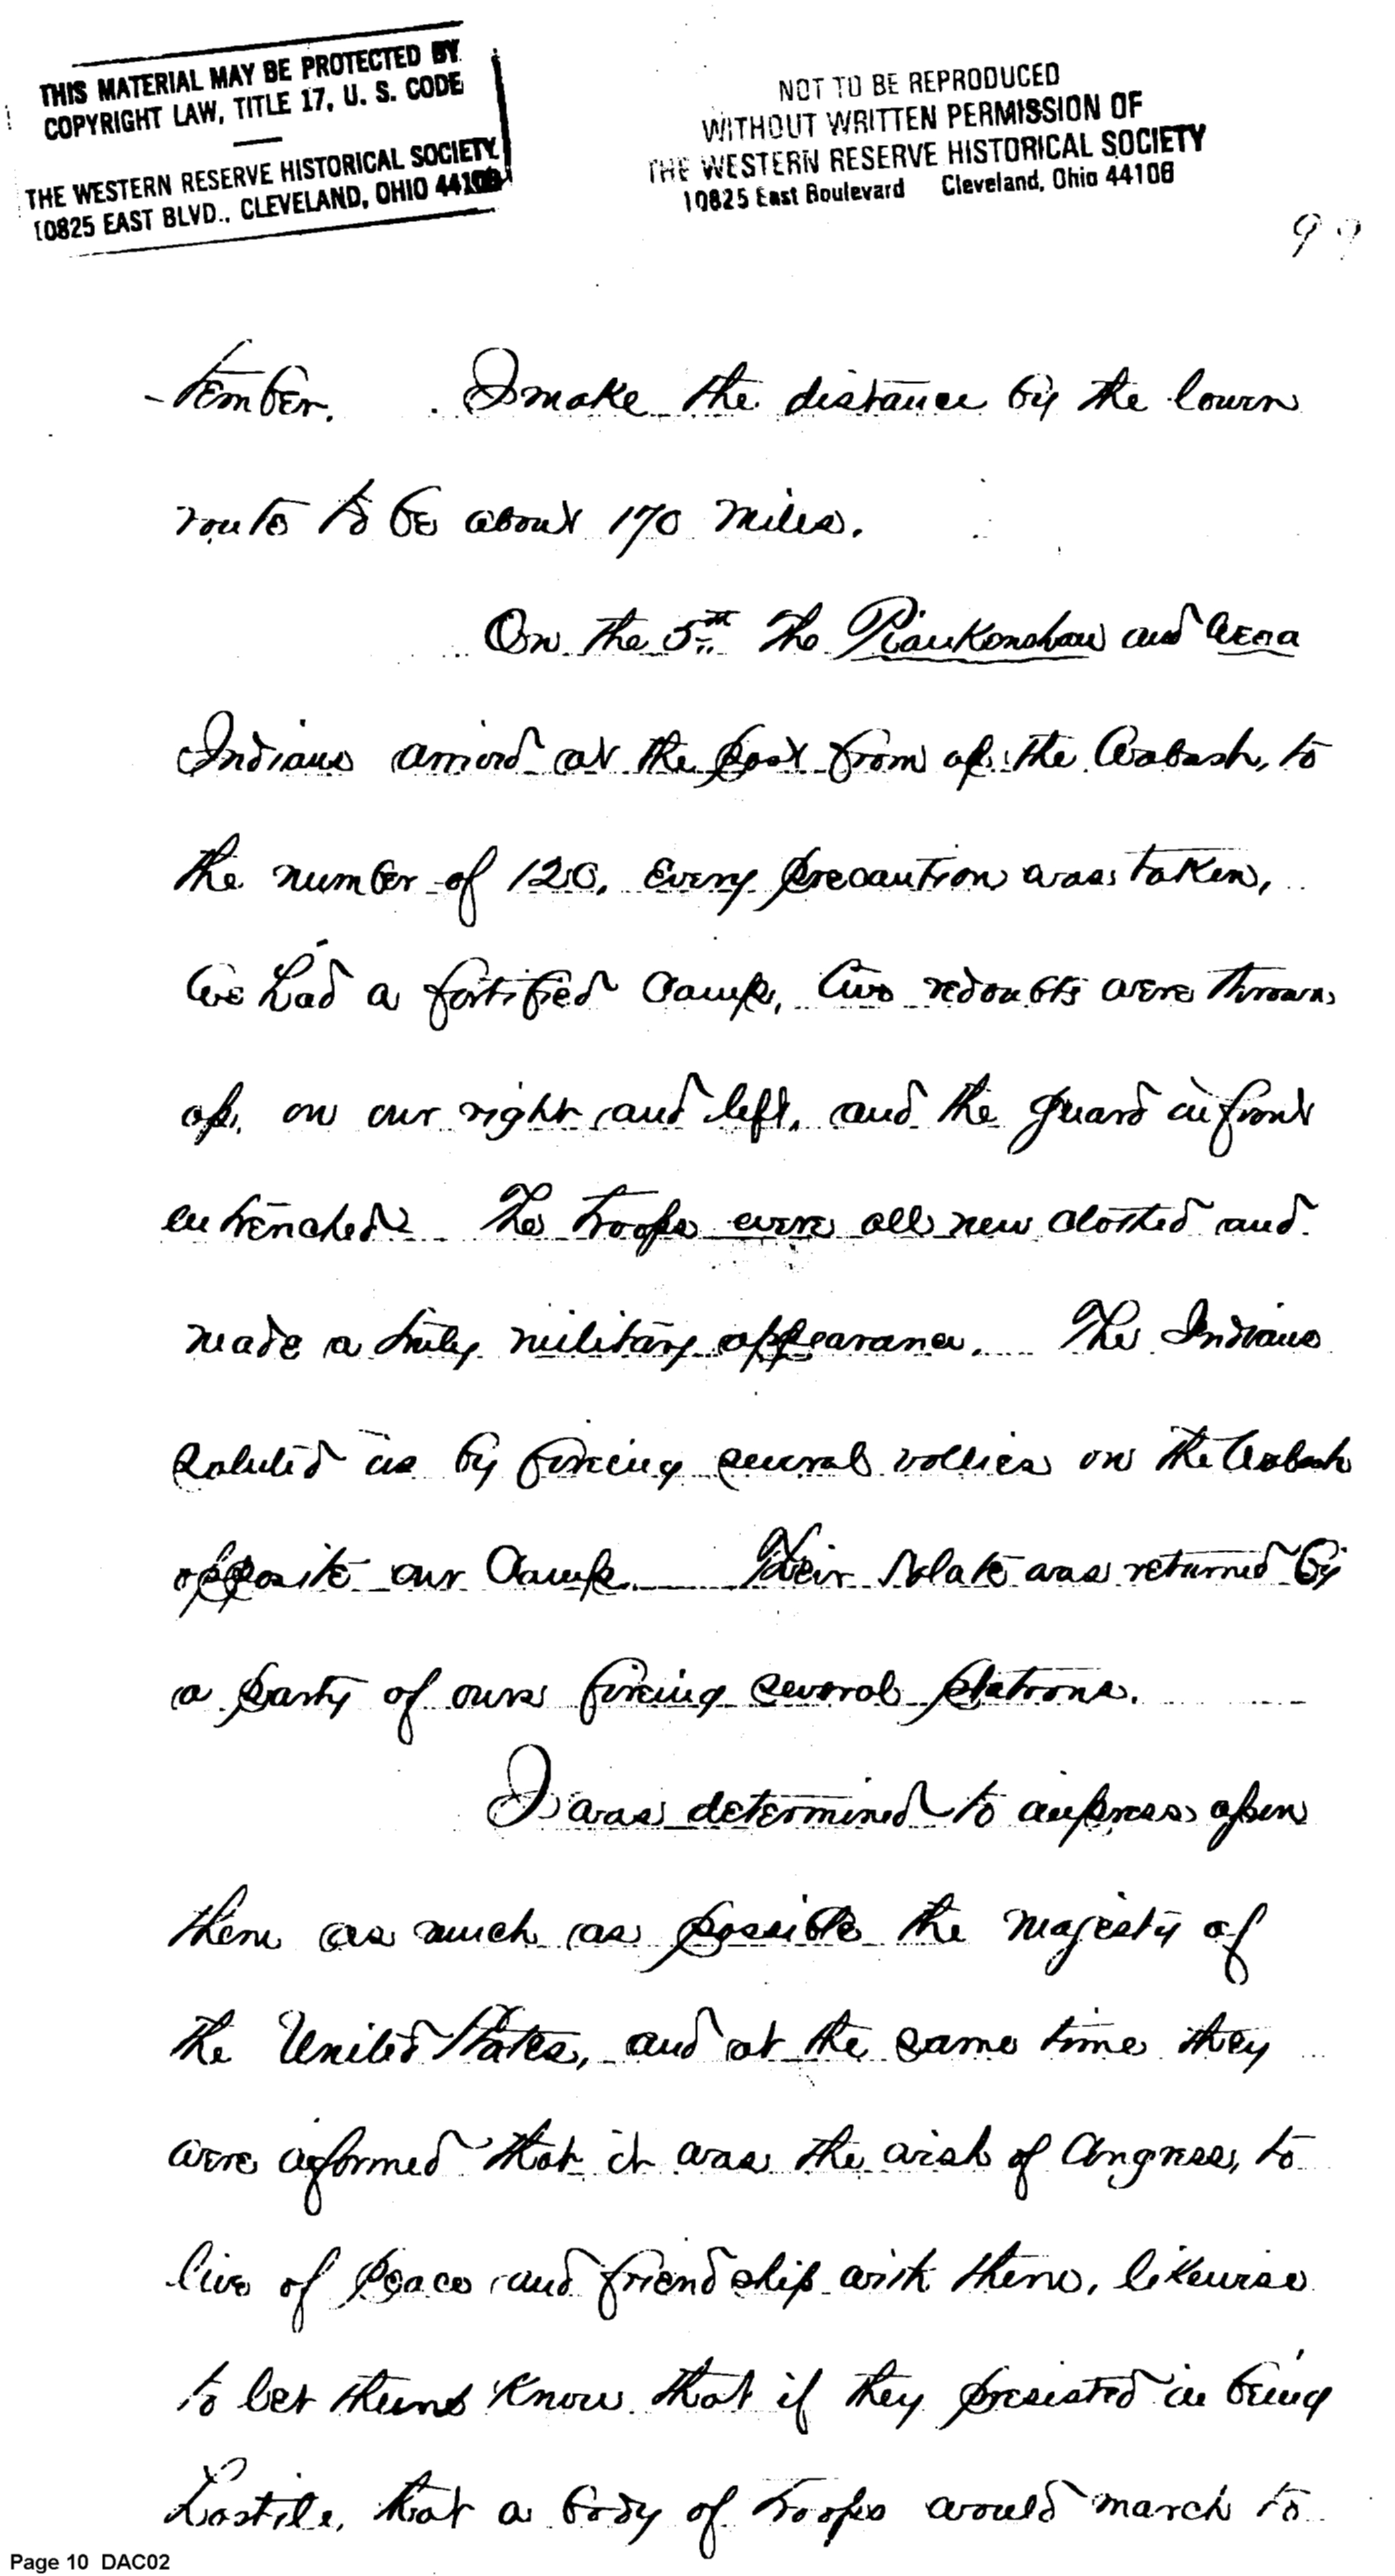 THIS MATERIAL MAY BE PROTECTED BY
COPYRIGHT LAW, TITLE 17, U. S. CODE
THE WESTERN RESERVE HISTORICAL SOCIETY
10825 EAST BLVD., CLEVELAND, OHIO 44106
NOT TO BE REPRODUCED
WITHOUT WRITTEN PERMISSION OF
THE WESTERN RESERVE HISTORICAL SOCIETY
10825 East Boulevard Cleveland, Ohio 44106
99
-tember. I make the distance by the lower
route to be about 170 miles.
On the 5th the Piankenshaw and Wea
Indians arrived at the post from up the Wabash, to
the number of 120. Every precaution was taken,
We had a fortified Camp, two redoubts were thrown
up, on our right and left, and the guard in front
entrenched. The troops were all new clothed and
made a truly military appearance. The Indians
saluted us by fireing several vollies on the Wabash
opposite our Camp. Their salute was returned by
a party of ours fireing several platoons.
I was determined to impress upon
them as much as possible the majesty of
the United States, and at the same time they
were informed that it was the wish of Congress, to
live of peace and friendship with them, likewise
to let them know that if they presisted in being
hostile, that a body of troops would march to
Page 10 DAC02